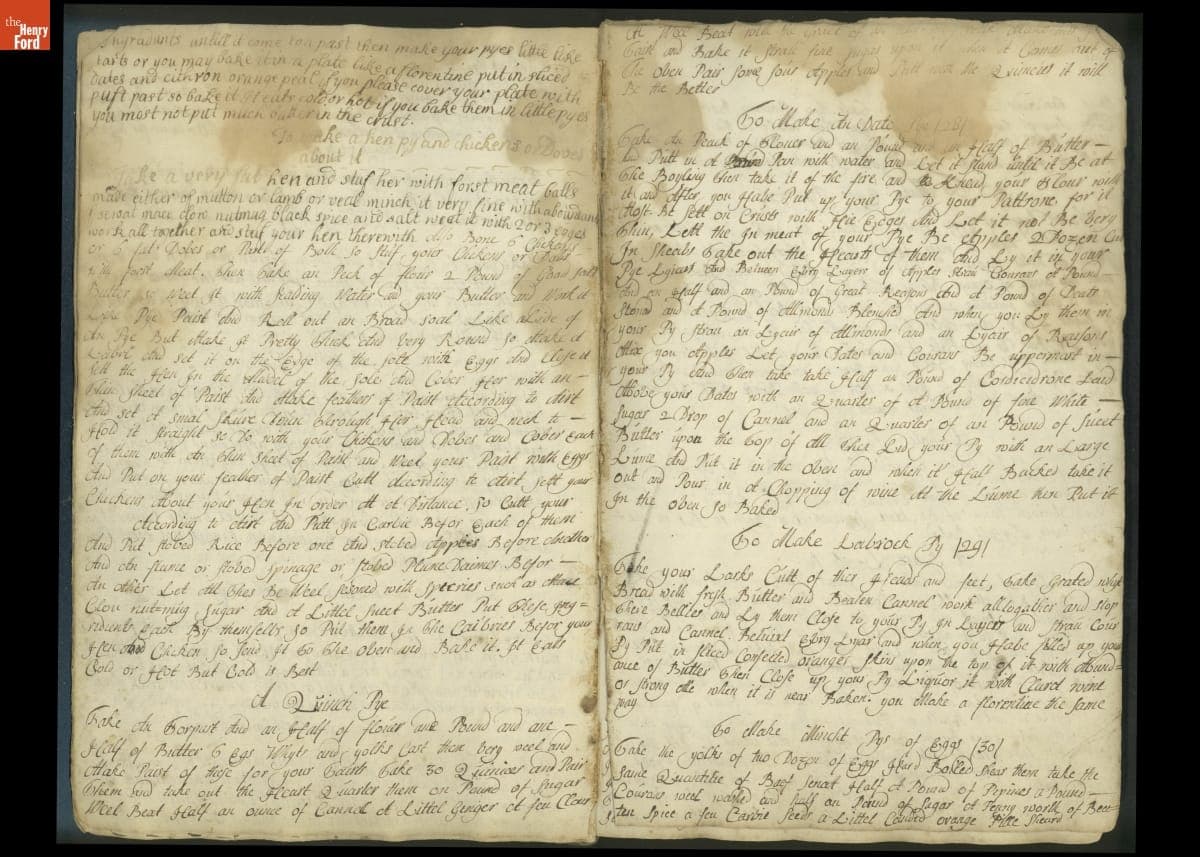 the Henry Ford
Ingradints untill it come to a past then make your pyes little like
tarts or you may bake it in a plate like a florentine put in sliced
dates and cithron orange peal if you please cover your plate with
puft past so bake it it eats cold or hot if you bake them in little pyes
you most not put much in the crust.
To make a hen py and chickens or Doves
about it
Take a very fat hen and stuf her with forst meat balls
made either of mutton or lamb or veal minch it very fine with
mace clow nutmug black spice and salt weet it with 2 or 3 egges
work all together and stuf your hen therewith also Bone 6 Chickens
or 6 fat Dobes or Part of Both so stuf your Chickens or Dobes
with forst Meat. then take an Peck of flour 2 Pound of
Butter so Weet it with scalding Water and your Butter and Work it
Like Pye Paist And Roll out an Broad soal Like a Side of
An Pye But Make it Pretty thick And Very Round so Make it
and set it on the Edge of the sole with Eggs and Close it
sett the Hen In the Madel of the sole And Cober Her with an
thin sheet of Paist and Make feathers of Paist according to Art
And set a smal skure through Her Head and neck to
Hold it straight so Do with your Chickens and Dobes and Cober Each
of them with an thin sheet of Paist and Weet your Paist with Eggs
And Put on your feather of Paist Cutt according to Art sett your
Chickens about your Hen In order At a Distance. so Cutt your
according to Art And Putt In Before Each of them
And Put stobed Rice Before one And stobed Apples Before Another
And an or stobed spinage or stobed Befor
An other Let All thes Be Weel seasoned with speceries such as Mace
Clou nut-mug sugar And a Littel sweet Butter Put these Ing=
ridients Each By themselfs so Put them In the Befor your
Hen And Chicken so send It to the oben and Bake it. It Eats
Cold or Hot But Cold is Best
A Quinch Pye
Take An and an Half of flouer ane Pound and ane
Half of Butter 6 Egs Whyts and yolks Cast them bery weel and
Make Past of these for your Take 30 Quinces and Pair
them and take out the Heart Quarter them on Pound of Sugar
Weel Beat Half an ounce of Cannel a Littel Ginger a feu Clous
All Weel Beat with the
and Bake it strau fine sugar upon it when it Comes out of
the Oben Pair some sour Apples and Putt with the Quinces it will
Be the Better
To Make An Date Pye |28|
Take An Peack of flouer and an Pound and an Half of Butter
and Putt in a Pan with water and Let it stand until it Be at
the Boyling then take it of the fire and Knead your flour with
it and After you Habe Put up your Pye to your Pattrone for it
Most Be sett on Crusts with Hie Edges and Let it not Be bery
thin, Lett the In meat of your Pye Be Apples 2 Dozen Cut
In Take out the Hearts of them And Ly it in your
Pye Lyiars And Between Ebry Layer of Apples strau Courans a Pound
And an Half and an Pound of Great Reasons And a Pound of Deats
stoned and a Pound of Allmonds Blenshed And when you Ly them in
your Py strau an Lyair of Allmonds and an Lyair of Reasons
you Apples Let your Dates and Courans Be uppermost in
your Py And then take take Half an Pound of Laid
Above your Dates with an Quarter of a Pound of fine White
sugar 2 Drop of Cannel and an Quarter of an Pound of sueet
Butter upon the top of All then Lid your Py with an Large
Lume And Put it in the oben and when it Half Backed take it
out and Pour in a Chopping of wine At the Lume then Put it
In the oben so Baked
To Make Labrock Py |29|
Take your Larks Cutt of ther Heads and feet, take grated whyt
Bread with fresh Butter and Beaten Cannel work alltogather and stop
there Bellies and Ly them Close to your Py In Layers and strau Cour
rans and Cannel Betwixt Ebry Lyar and when you Habe filled up your
Py Put in sliced Confected oranger skins upon the top of it with Abund=
ance of Butter then Close up your Py Liquor it with Claret wine
or strong Ale when it is near Baken. you Make a florentine the same
way
To Make Mincht Pys of Eggs |30|
Take the yolks of two Dozon of Eggs Hard Boiled shear them take the
same Quantitie of Beef Half a Pound of Pepines a Pound
Courans weel washed and half an Pound of sugar a Penny worth of Bea=
ten spice a feu Carbie seeds a Littel Canded orange Pille sheard